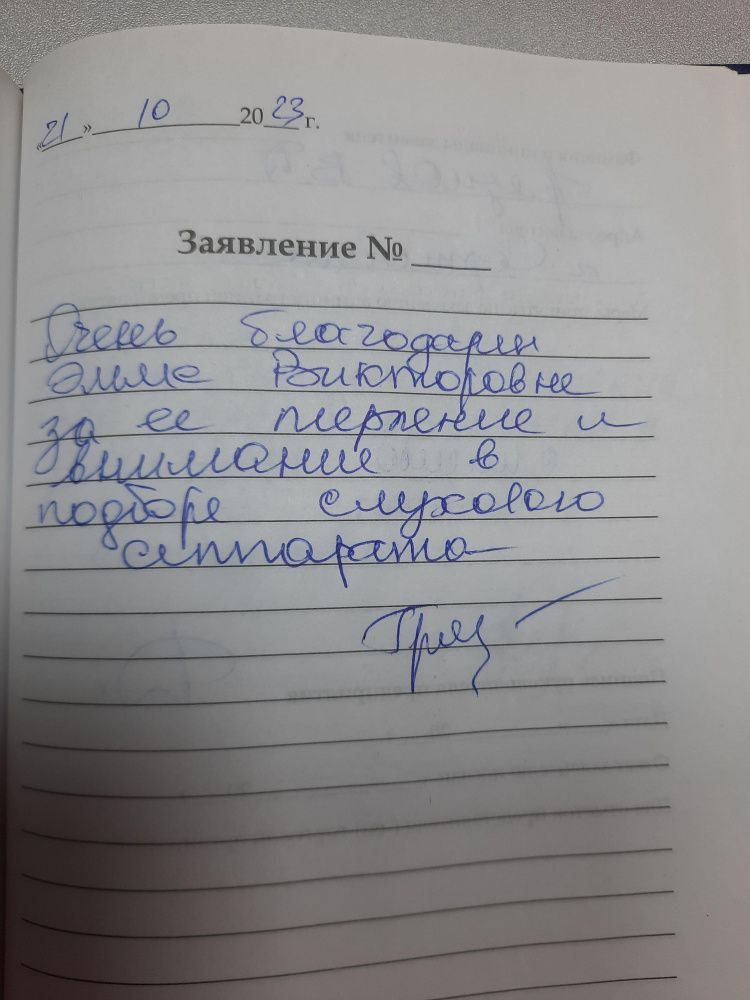 «21» 10 2023 г.
Заявление № ____
Очень благодарен
Эмме Викторовне
за ее терпение и
внимание в
подборе слухового
аппарата